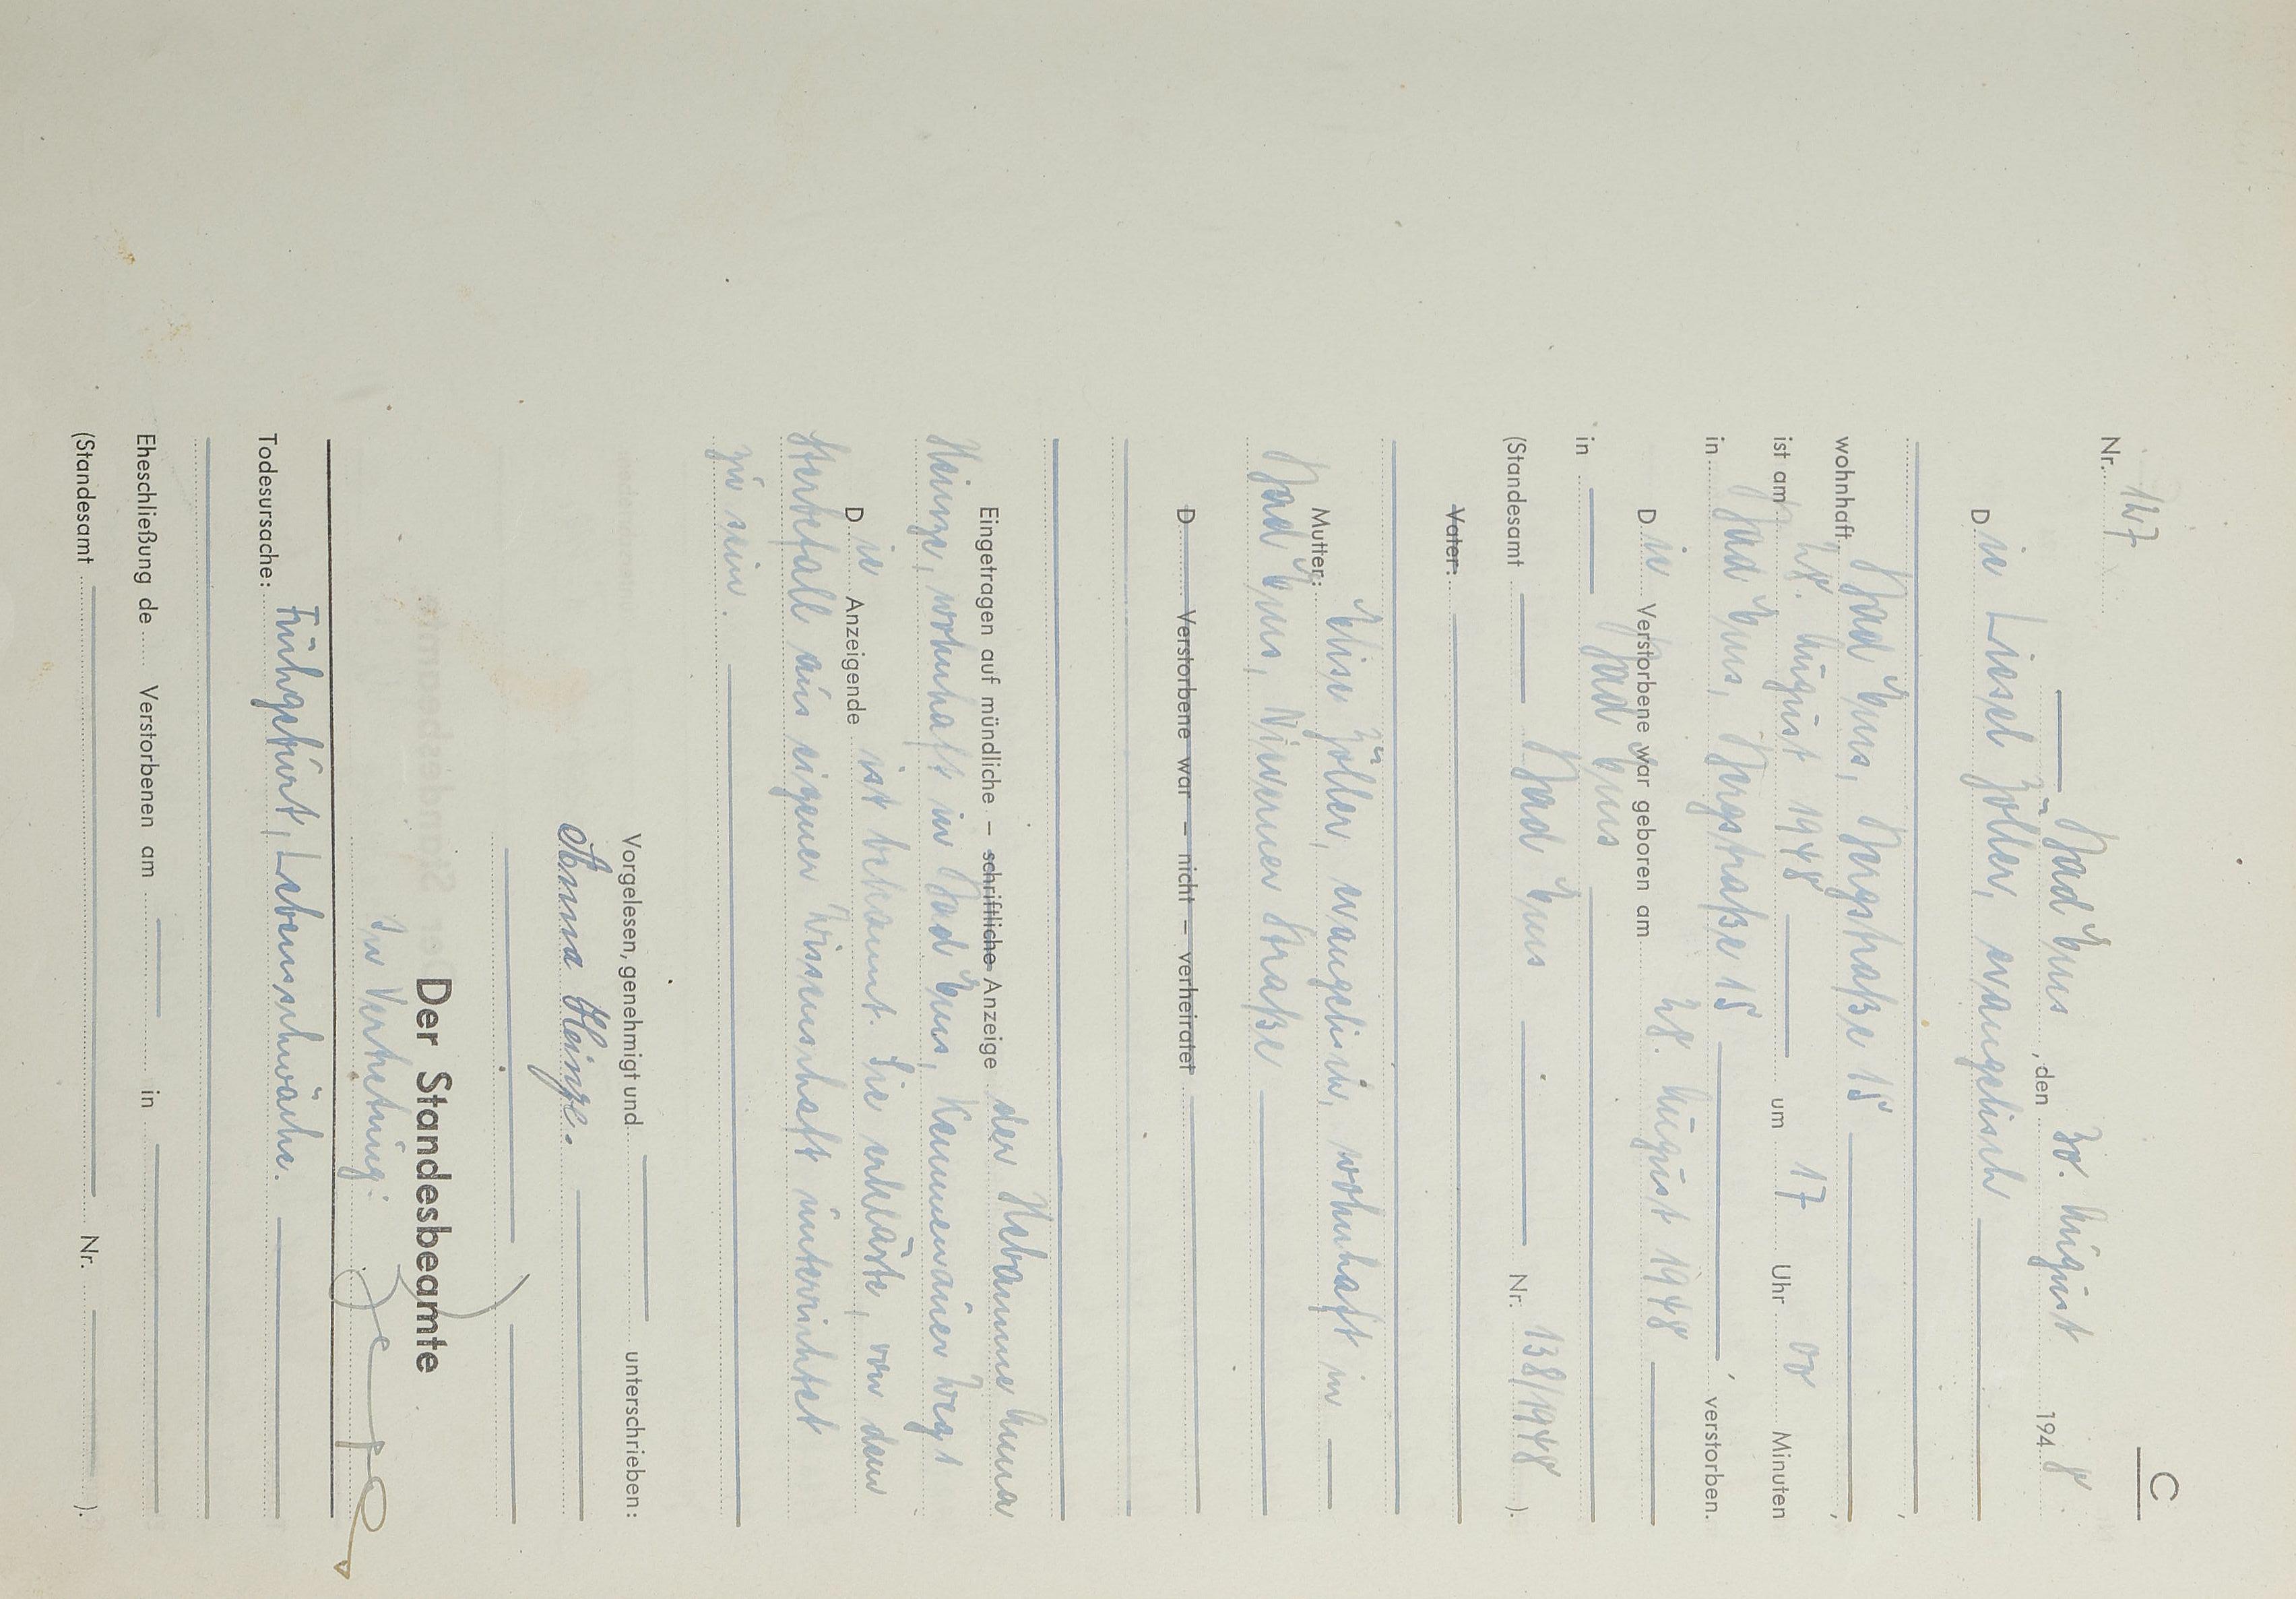 C
Nr. 147
Bad Ems, den 30. August 1948
Die Liesel Zöller, evangelisch
wohnhaft Bad Ems, Bergstraße 15,
ist am 28. August 1948 um 17 Uhr 00 Minuten
in Bad Ems, Bergstraße 15, verstorben.
Die Verstorbene war geboren am 28. August 1948
in Bad Ems
(Standesamt Bad Ems Nr. 138/1948 ).
Vater:
Mutter: Elise Zöller, evangelisch, wohnhaft in
Bad Ems, Nieverner Straße
D Verstorbene war – nicht – verheiratet
Eingetragen auf mündliche – schriftliche Anzeige der Hebamme Anna
Heinze, wohnhaft in Bad Ems, Kemmenauer Weg 1
Die Anzeigende ist bekannt. Sie erklärte, von dem
Sterbefall aus eigener Wissenschaft unterrichtet
zu sein.
Vorgelesen, genehmigt und unterschrieben:
Anna Heinze.
Der Standesbeamte
In Vertretung:
Todesursache: Frühgeburt, Lebensschwäche.
Eheschließung de Verstorbenen am in
(Standesamt Nr. ).